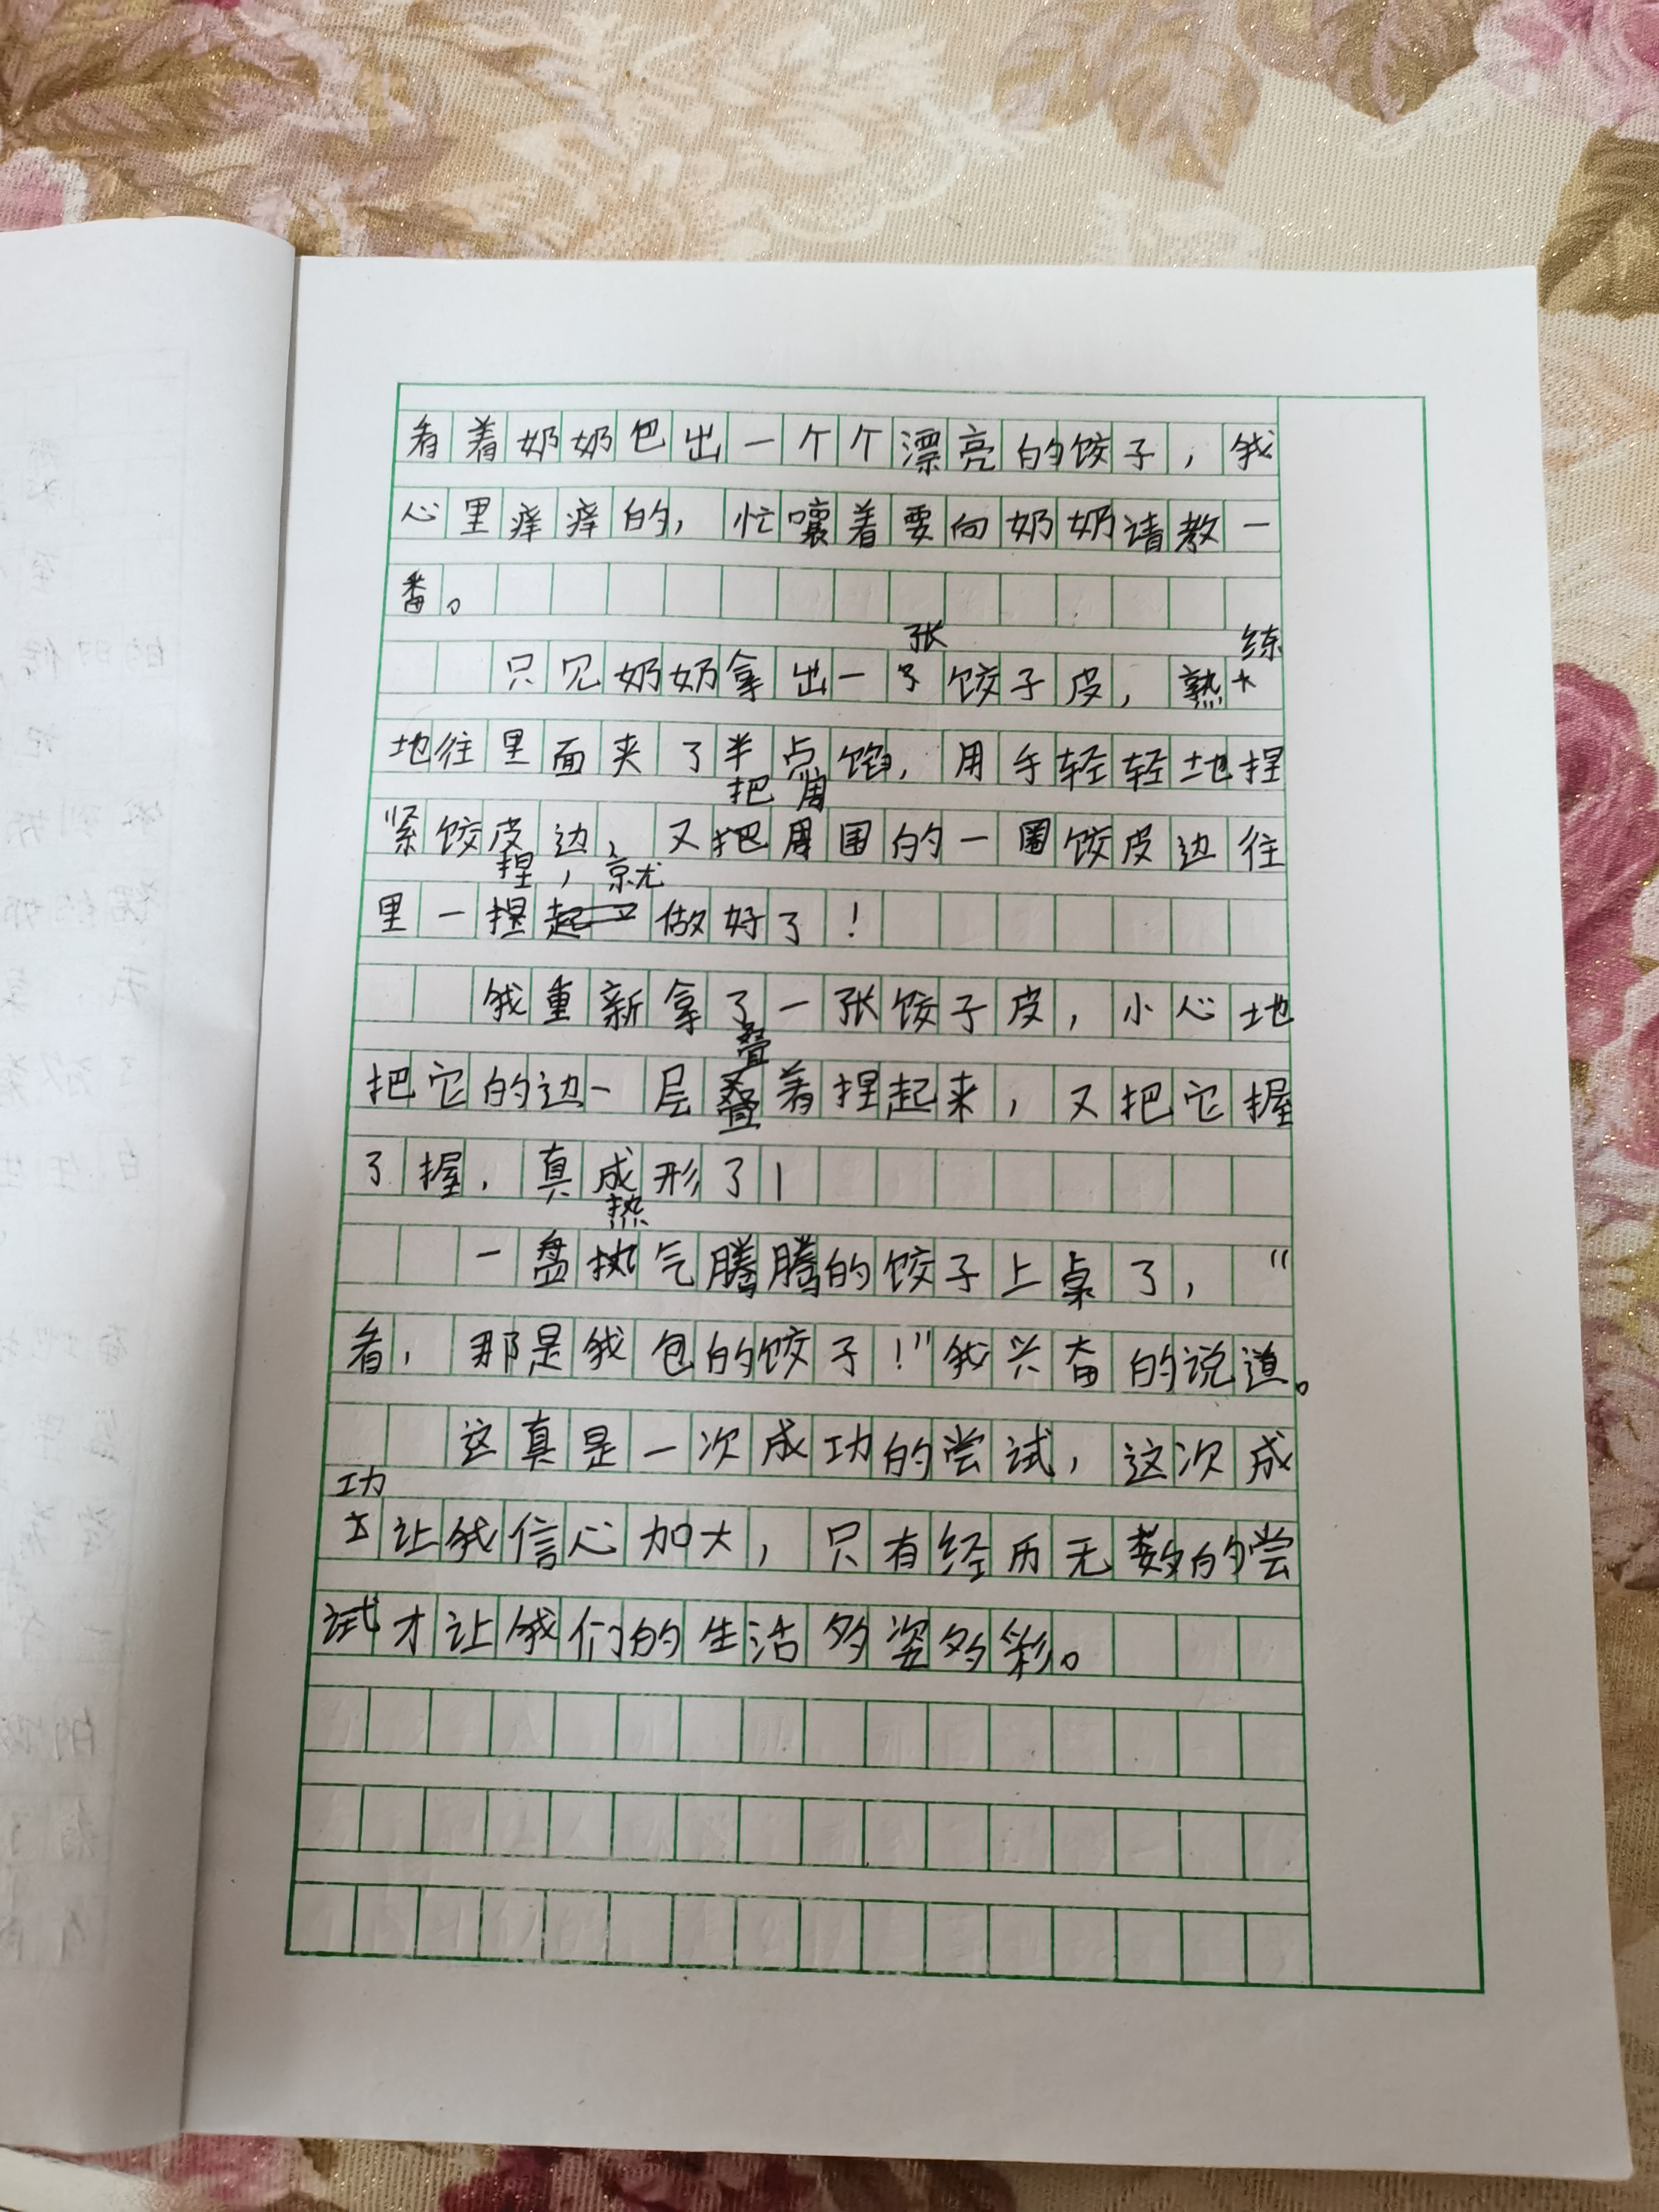 看着奶奶包出一个个漂亮的饺子，我
心里痒痒的，忙嚷着要向奶奶请教一
番。
只见奶奶拿出一张饺子皮，熟练
地往里面夹了半点馅，用手轻轻地捏
紧饺皮边，又把周围的一圈饺皮边往
里一捏，就做好了！
我重新拿了一张饺子皮，小心地
把它的边一层叠着捏起来，又把它握
了握，真成形了！
一盘热气腾腾的饺子上桌了，“
看，那是我包的饺子！”我兴奋的说道。
这真是一次成功的尝试，这次成
功让我信心加大，只有经历无数的尝
试才让我们的生活多姿多彩。